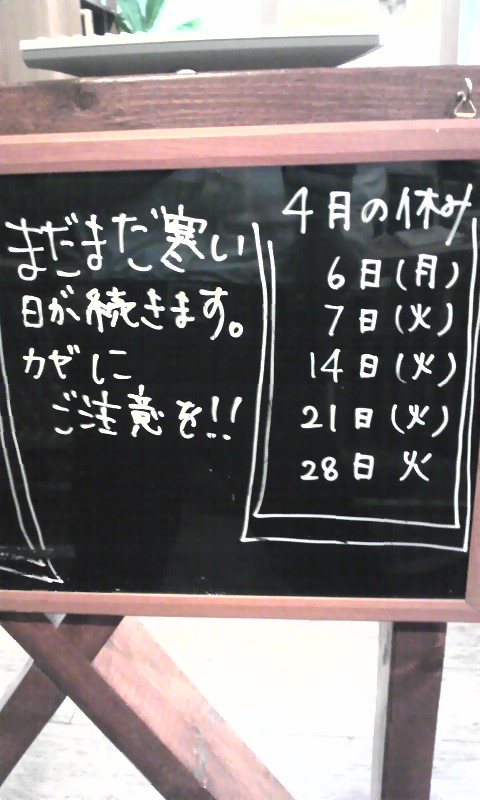 まだまだ寒い
日が続きます。
カゼに
ご注意を!!
4月の休み
6日(月)
7日(火)
14日(火)
21日(火)
28日 火